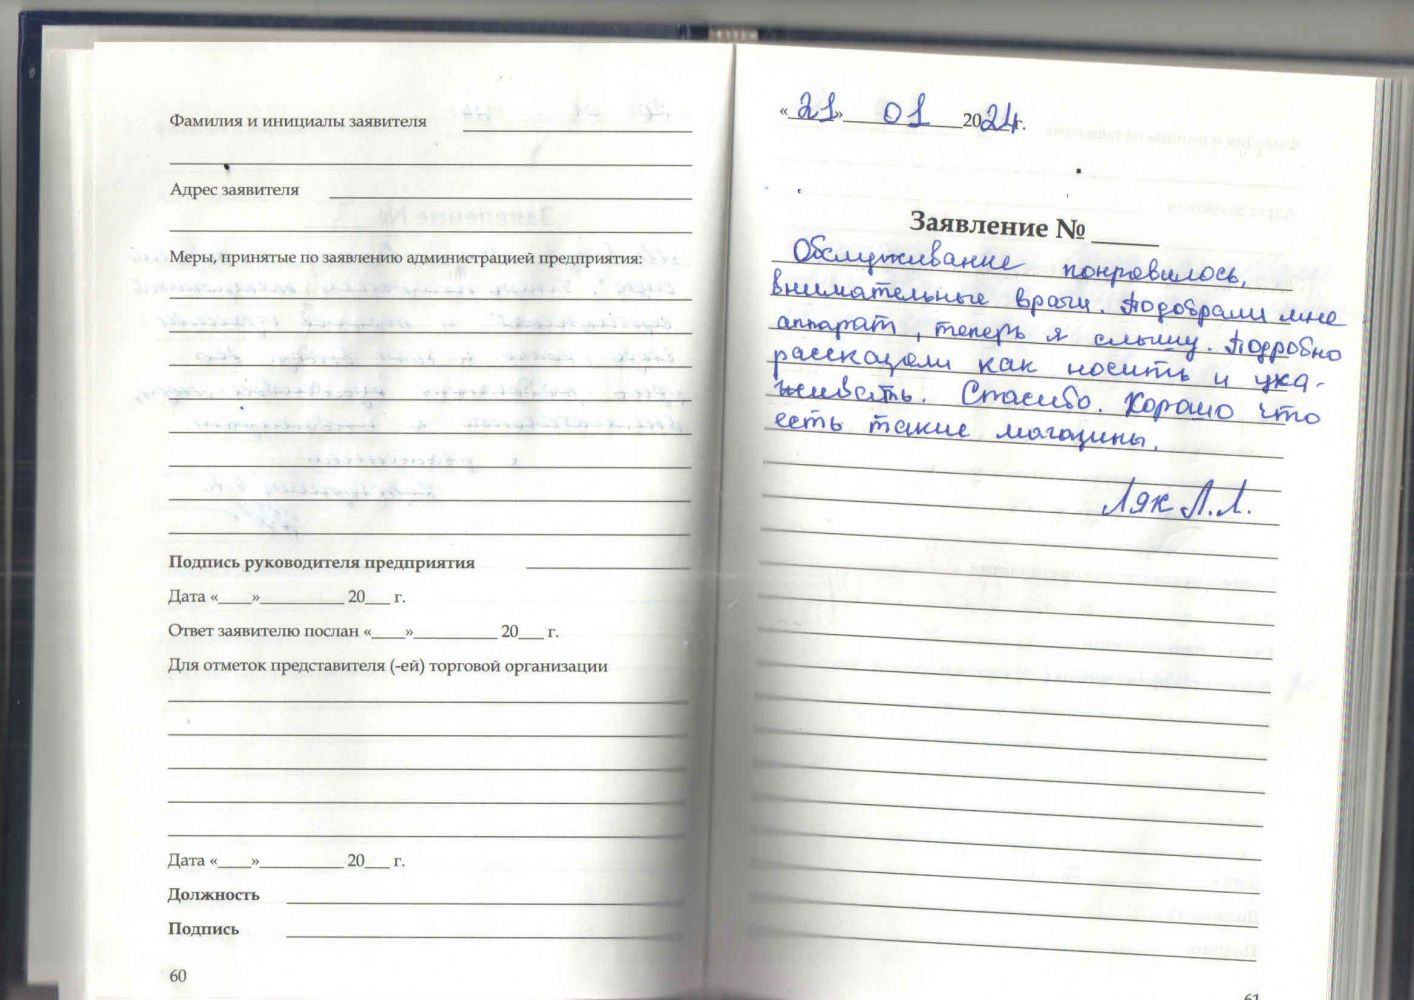 Фамилия и инициалы заявителя
Адрес заявителя
Меры, принятые по заявлению администрацией предприятия:
Подпись руководителя предприятия
Дата «____»__________ 20___ г.
Ответ заявителю послан «____»__________ 20___ г.
Для отметок представителя (-ей) торговой организации
Дата «____»__________ 20___ г.
Должность
Подпись
60
«21» 01 2024г.
Заявление № _____
Обслуживание понравилось,
внимательные врачи. Подобрали мне
аппарат, теперь я слышу. Подробно
рассказали как носить и уха-
живать. Спасибо. Хорошо что
есть такие магазины.
Ляк Л.Л.
61